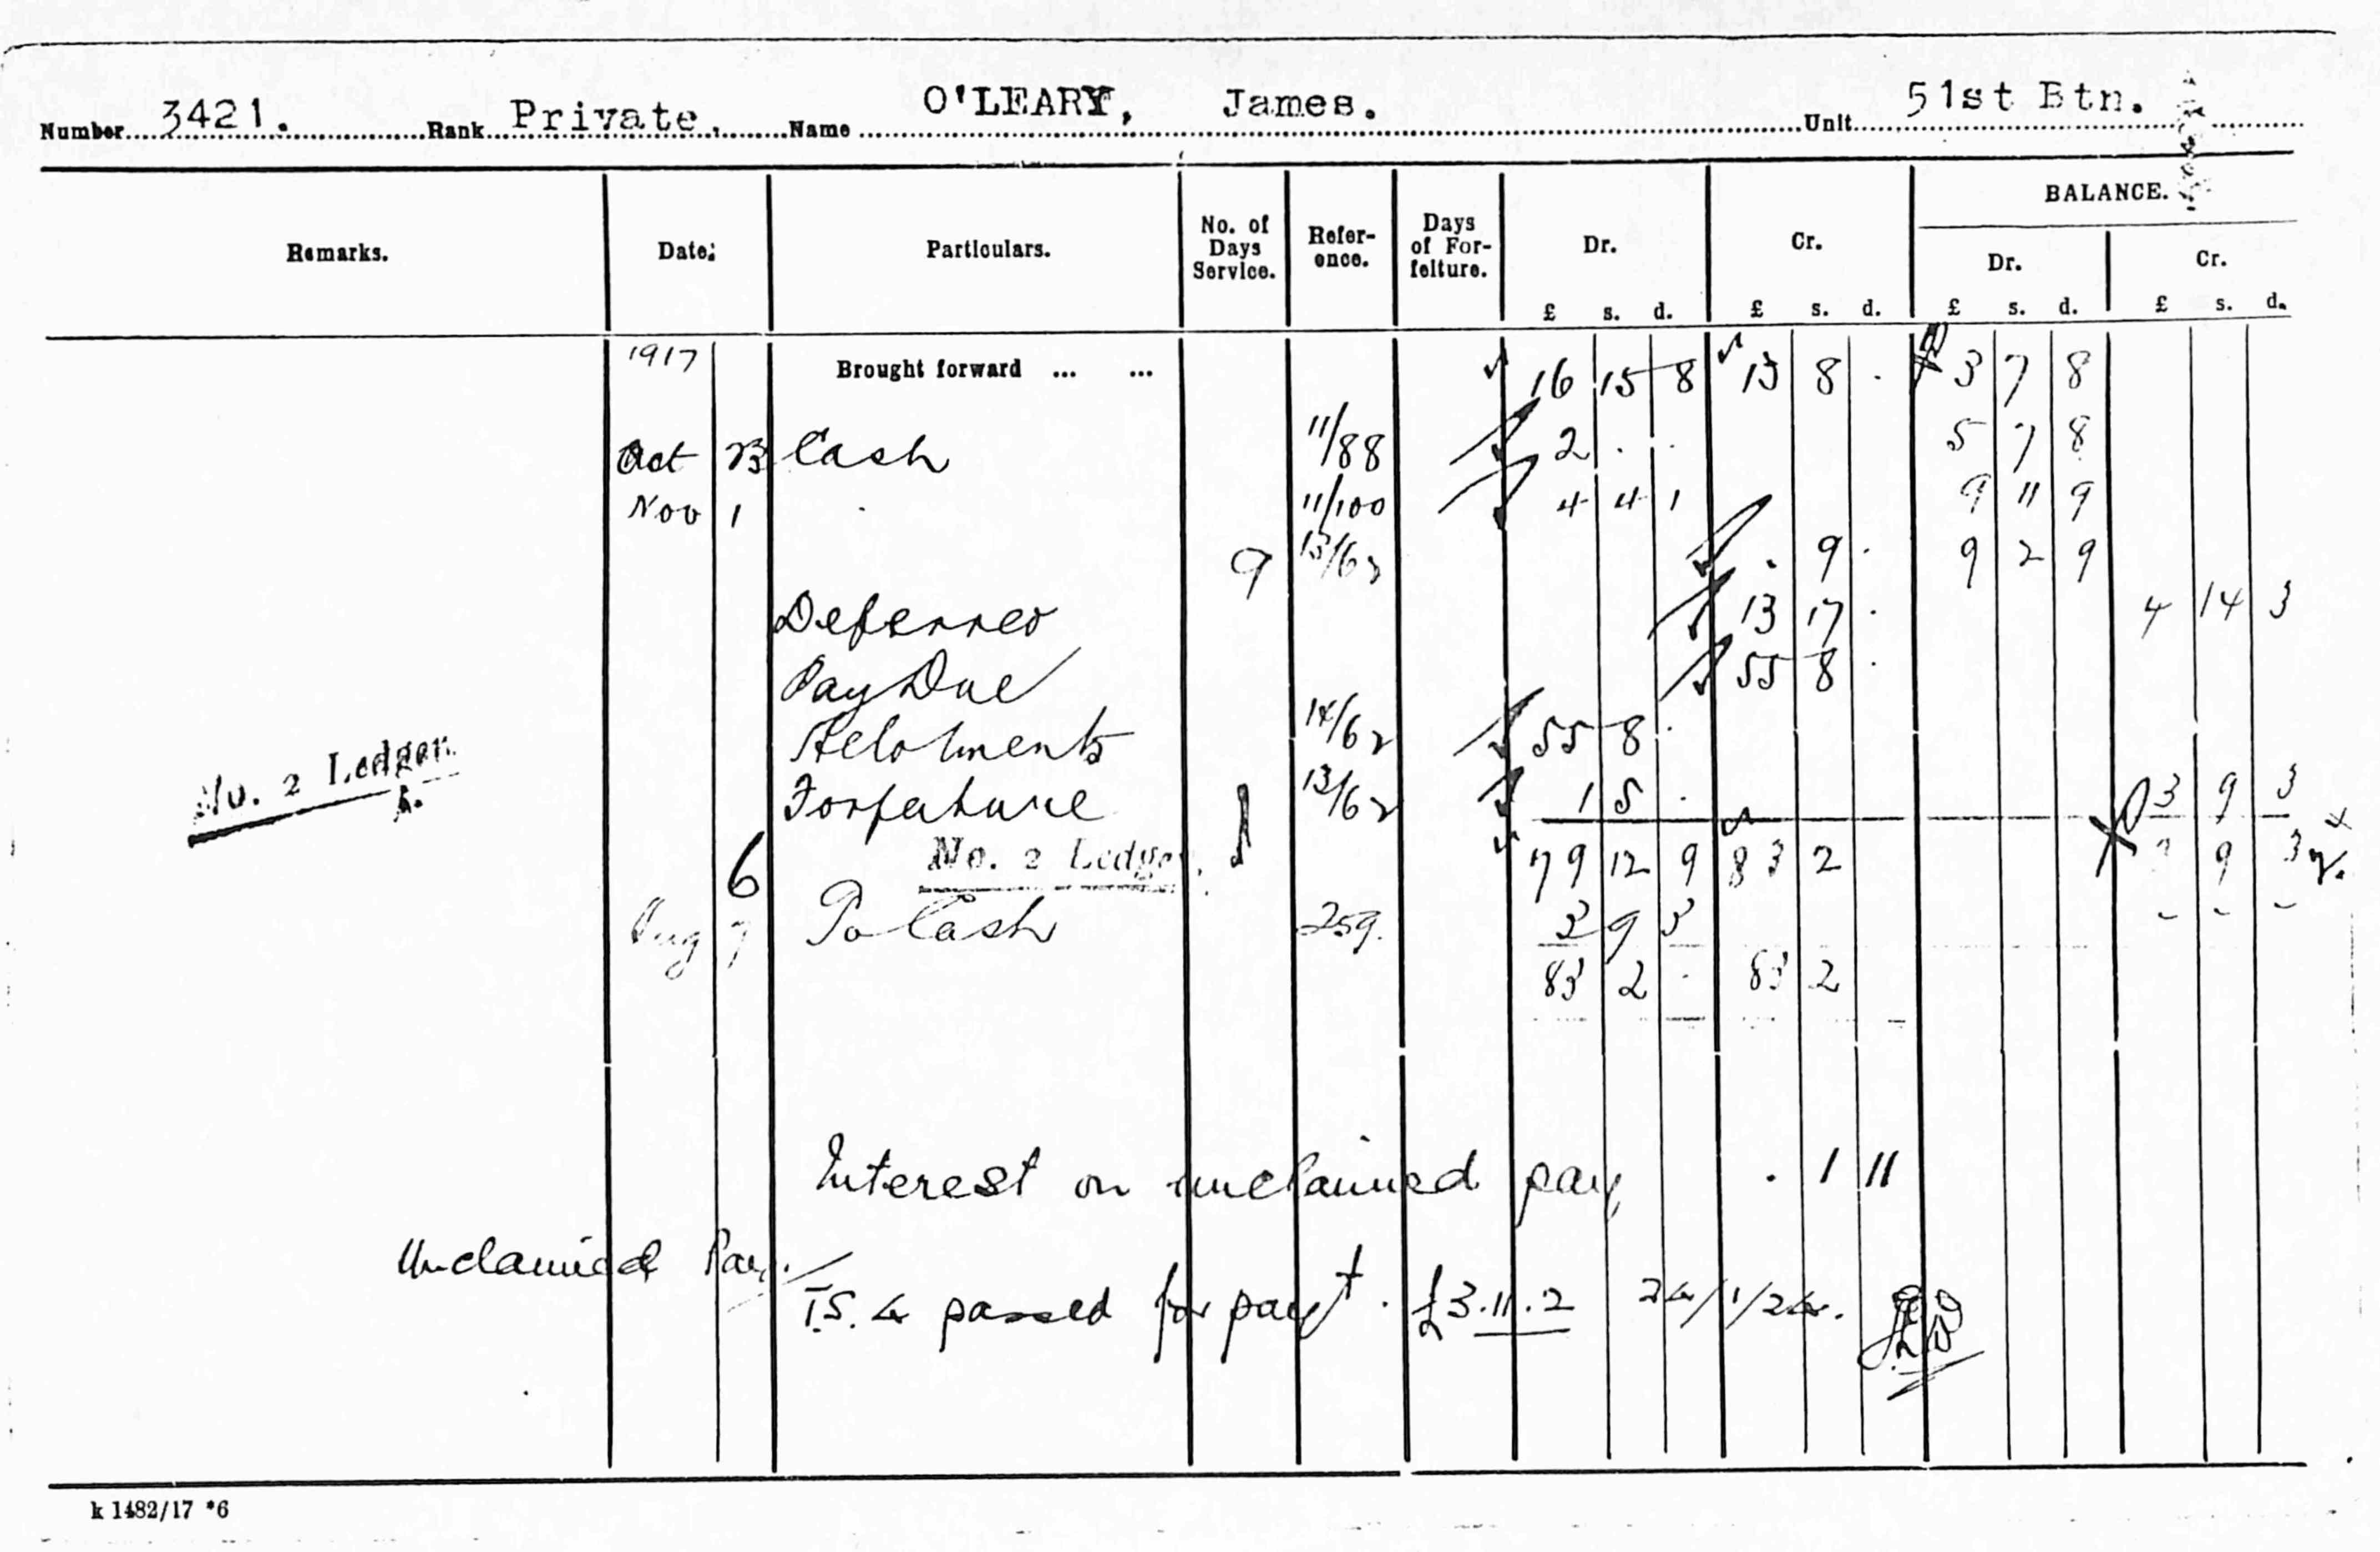 Number 3421. Rank Private. Name O'LEARY, James. Unit 51st Btn.
Remarks. Date. Particulars. No. of Days Service. Reference. Days of Forfeiture. Dr. Cr. BALANCE.
Dr. Cr.
£ s. d. £ s. d. £ s. d. £ s. d.
1917 Brought forward ... ... 16 15 8 13 8 . 3 7 8
Oct 23 Cash 11/88 2 . . 5 7 8
Nov 1 . 11/100 4 4 1 9 11 9
9 13/62 . 9 . 9 2 9
Deferred 13 17 . 4 14 3
Pay Due 55 8 .
Allotments 14/62 55 8 .
Forfeiture 13/62 1 5 . 3 9 3
No. 2 Ledger.
6 No. 2 Ledger 79 12 9 83 2 3 9 3
Aug 7 To Cash 259. 3 9 3 - - -
83 2 - 83 2
Interest on unclaimed pay . 1 11
Unclaimed Pay.
T.S. 4 passed for payt. £3.11.2 24/1/24.
k 1482/17 *6